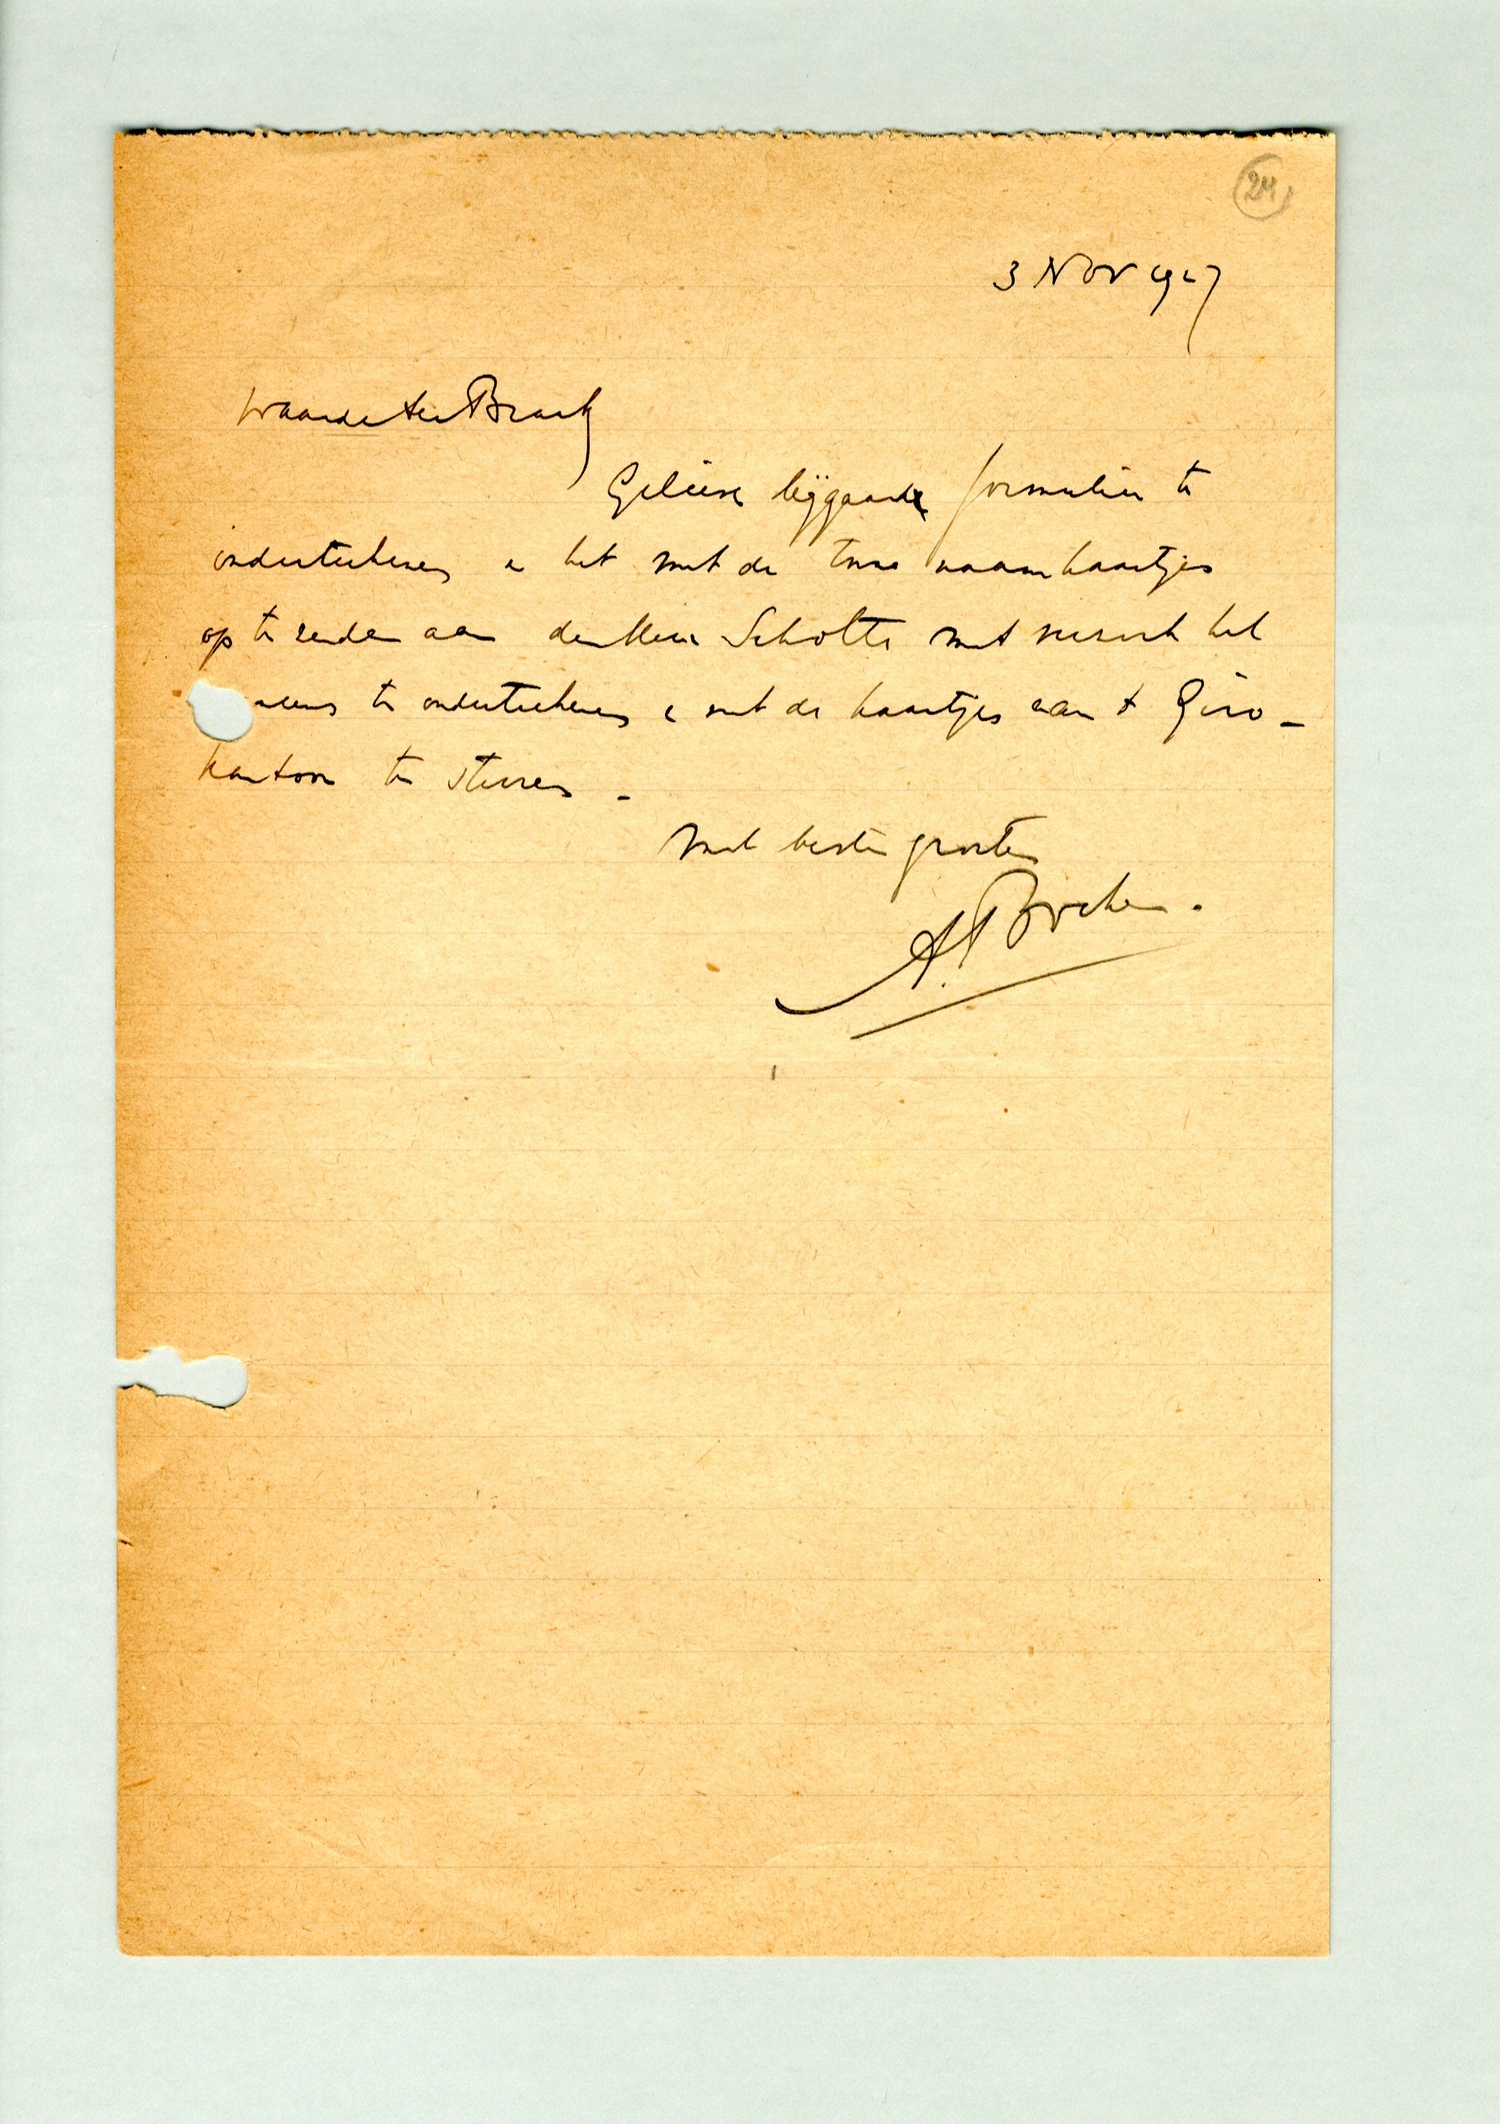 24
3 Nov 1927
Waarde ter Braak
Gelieve bijgaand formulier te
onderteekenen en het met de twee naamkaartjes
op te zenden aan den Heer Scholte met verzoek het
te onderteekenen en met de kaartjes aan 't Giro-
kantoor te sturen.
Met beste groeten
A. Boeken.